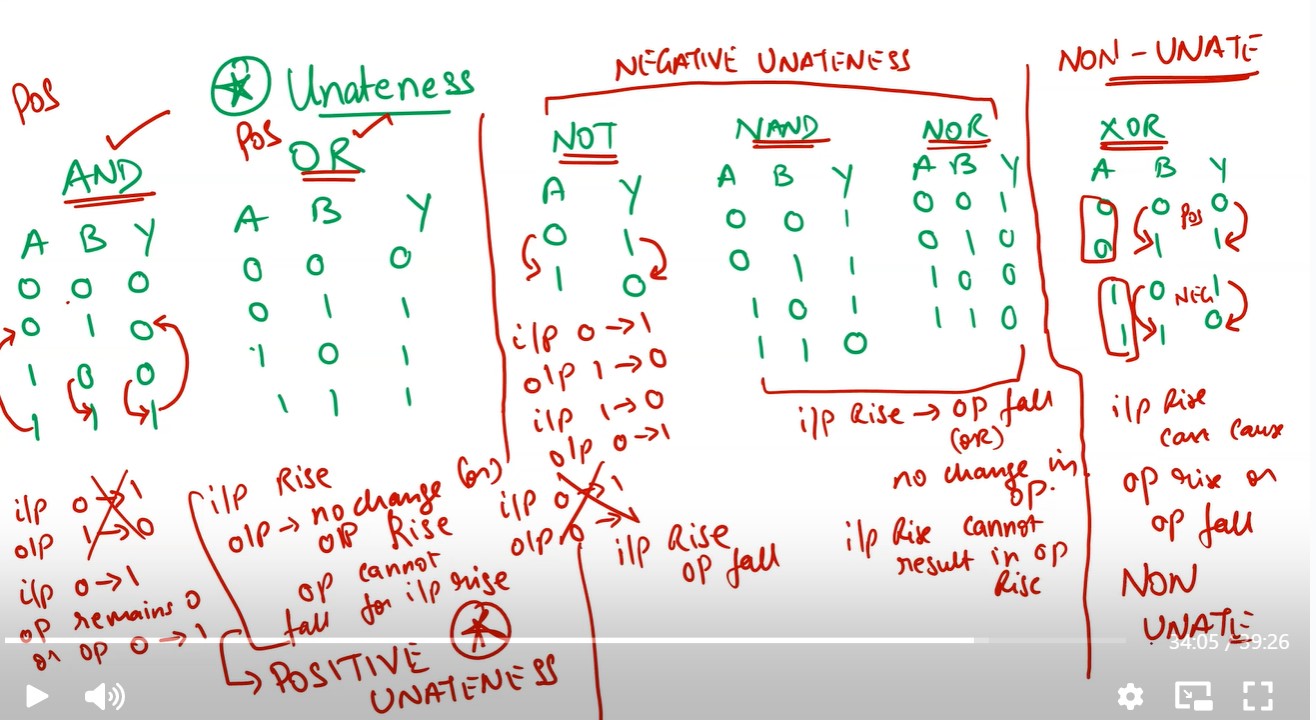 POS
✓
AND
A B Y
0 0 0
0 1 0
1 0 0
1 1 1
i/p 0 → 1
o/p 1 → 0
i/p 0 → 1
OP remains 0
or OP 0 → 1
Unateness
POS
OR ✓
A B Y
0 0 0
0 1 1
1 0 1
1 1 1
i/p Rise
o/p → no change (or)
o/p Rise
OP cannot
fall for i/p rise
→ POSITIVE
UNATENESS
NEGATIVE UNATENESS
NOT
A Y
0 1
1 0
i/p 0 → 1
o/p 1 → 0
i/p 1 → 0
o/p 0 → 1
i/p 0 → 1
o/p 0 → 1
i/p Rise
OP fall
NAND
A B Y
0 0 1
0 1 1
1 0 1
1 1 0
NOR
A B Y
0 0 1
0 1 0
1 0 0
1 1 0
i/p Rise → OP fall
(OR)
no change in
OP.
i/p Rise cannot
result in OP
Rise
NON - UNATE
XOR
A B Y
0 0 POS 0
0 1 1
1 0 NEG 1
1 1 0
i/p Rise
can cause
OP rise or
OP fall
NON
UNATE
34:05 / 39:26